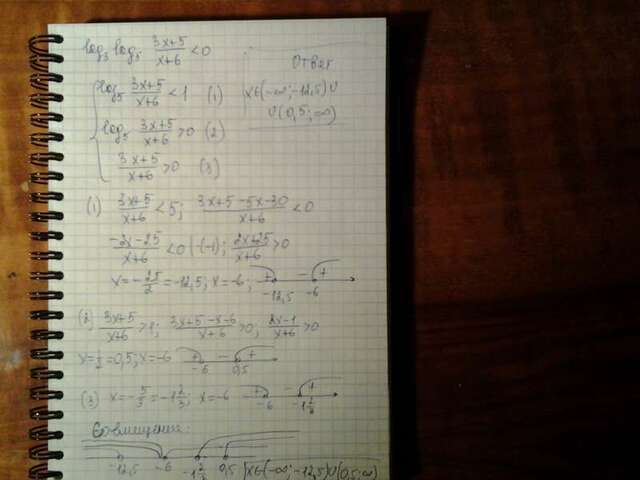 log₃ log₅ (3x+5)/(x+6) < 0
log₅ (3x+5)/(x+6) < 1 (1)
log₅ (3x+5)/(x+6) > 0 (2)
(3x+5)/(x+6) > 0 (3)
Ответ
x∈(-∞;-12,5)U
U(0,5;∞)
(1) (3x+5)/(x+6) < 5; (3x+5-5x-30)/(x+6) < 0
(-2x-25)/(x+6) < 0 | ·(-1); (2x+25)/(x+6) > 0
x = -25/2 = -12,5; x = -6; + - +
-12,5 -6
(2) (3x+5)/(x+6) > 1; (3x+5-x-6)/(x+6) > 0; (2x-1)/(x+6) > 0
x = 1/2 = 0,5; x = -6 + - +
-6 0,5
(3) x = -5/3 = -1 2/3; x = -6 + - +
-6 -1 2/3
Совмещение:
-12,5 -6 -1 2/3 0,5 x∈(-∞;-12,5)U(0,5;∞)